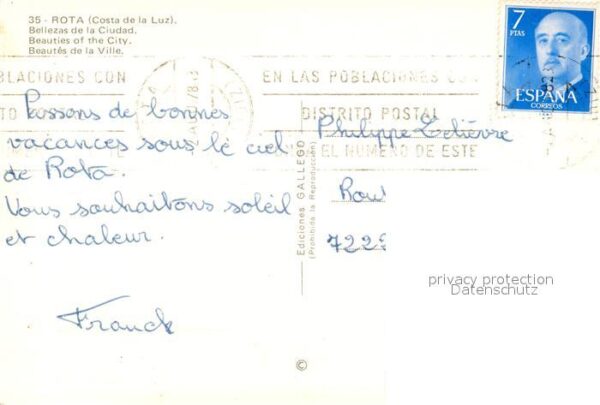 35 - ROTA (Costa de la Luz).
Bellezas de la Ciudad.
Beauties of the City.
Beautés de la Ville.
7
PTAS
ESPAÑA
CORREOS
BLACIONES CON
EN LAS POBLACIONES CON
DISTRITO POSTAL
EL NUMERO DE ESTE
Passons de bonnes
vacances sous le ciel
de Rota.
Vous souhaitons soleil
et chaleur.
Franck
Ediciones GALLEGO
(Prohibida la Reproducción)
©
Philippe Lelièvre
Rou
722
privacy protection
Datenschutz